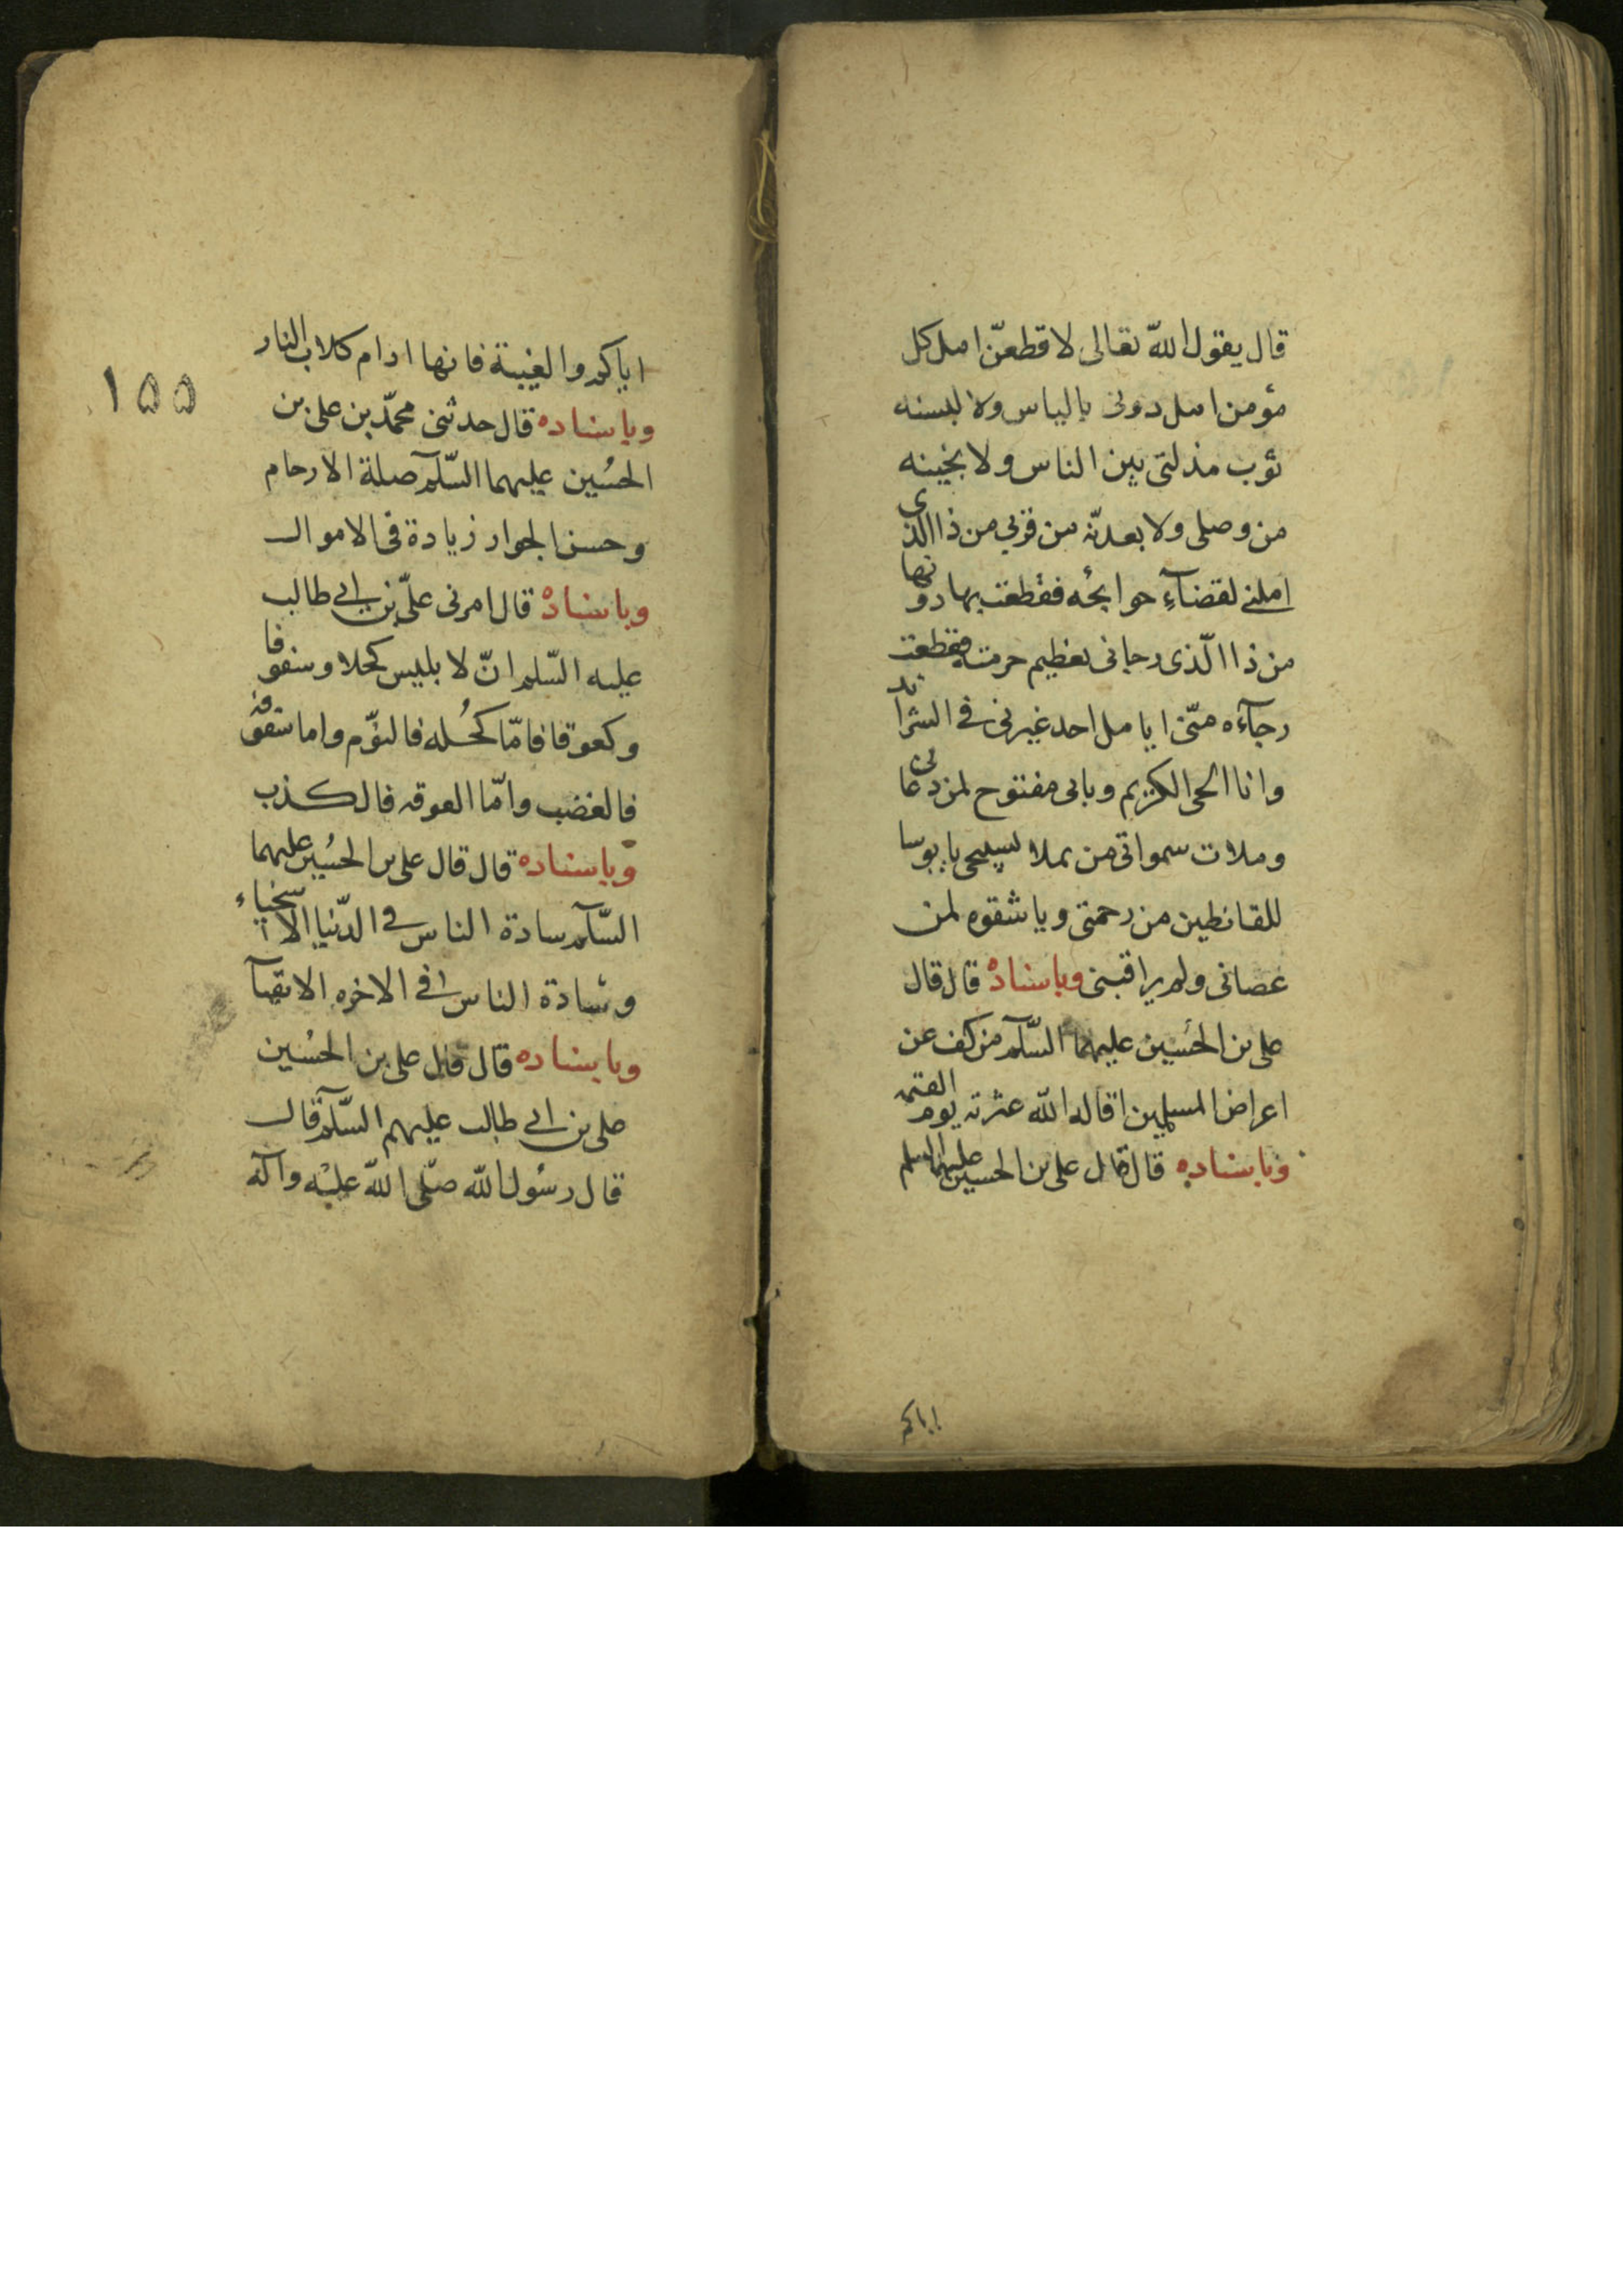 قال يقول الله تعالى لا قطعنّ امل كل
مؤمن امل دونى بالياس ولا لبسنه
ثوب مذلتى بين الناس ولا نخينه
من وصلى ولا بعدنّه من قربى من ذا الذى
املنى لقضاءِ حوائجه فقطعت بها دونها
من ذا الّذى رجانى بعظيم حرمته فقطعت
رجآءه منّى ايا مل احد غيرى فى الشدائد
وانا الحى الكريم وبابى مفتوح لمن دعانى
وملات سمواتى من يملا تسبيحى يا بوسا
للقانطين من رحمتى ويا شقوه لمن
عصانى ولم يراقبنى وباسناده قال قال
على بن الحسين عليهما السّلم من كف عن
اعراض المسلمين اقاله الله عثرته يوم القيمه
وباسناده قال قال على بن الحسين عليهما السلم
اياكم
١٥٥
اياكم والغيبة فانها ادام كلاب النار
وباسناده قال حدثنى محمّد بن على بن
الحسُين عليهما السّلم صلة الارحام
وحسن الجوار زيادة فى الاموال
وباسناده قال امرنى علىّ بن ابى طالب
عليه السّلم انّ لابليس كحلا وسفوفا
وكعوقا فامّا كحُله فالنوّم واما سفوفه
فالغضب وامّا العوقه فالكذب
وباسناده قال قال على بن الحسُين عليهما
السّلم سادة الناس فى الدّنيا الاسخياء
وسادة الناس فى الاخره الاتقيآ
وباسناده قال قال على بن الحسُين
على بن ابى طالب عليهم السّلم قال
قال رسُول الله صلّى الله عليْه وآله